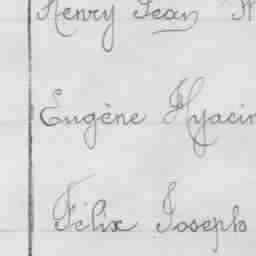 Henry Jean
Eugène Hyacin
Félix Joseph